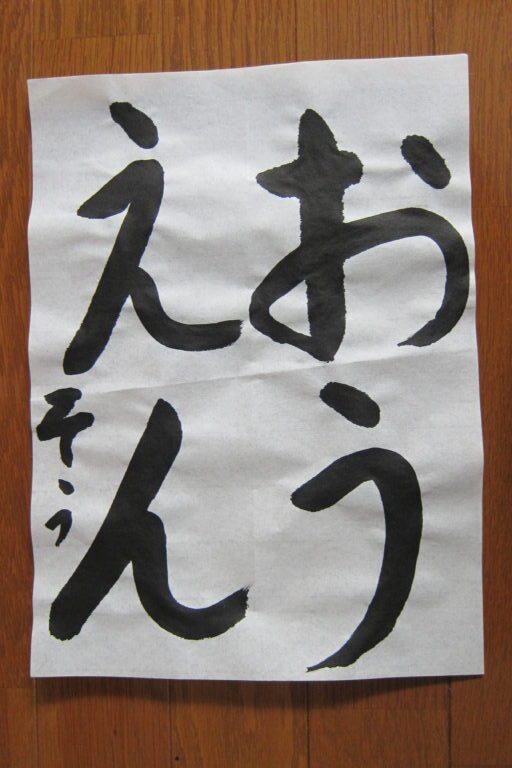 おう
えん
そう